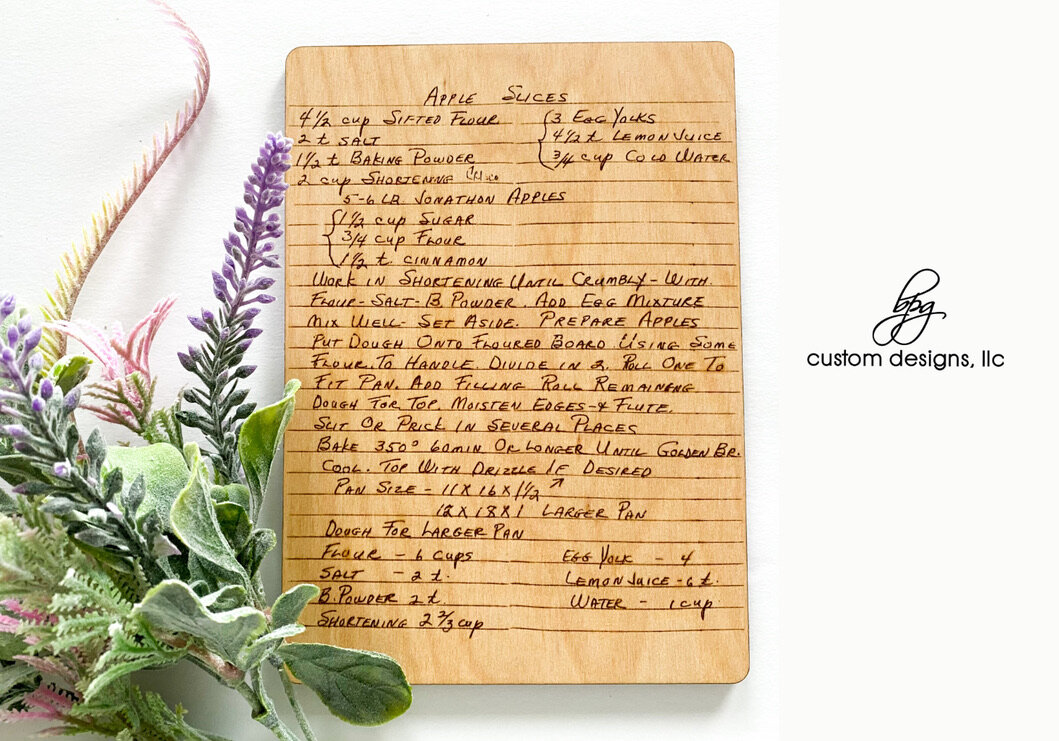 APPLE SLICES
4 1/2 cup SIFTED FLOUR
2 t SALT
1 1/2 t BAKING POWDER
2 cup SHORTENING
3 EGG YOLKS
4 1/2 t LEMON JUICE
3/4 cup COLD WATER
5-6 LB. JONATHON APPLES
1 1/2 cup SUGAR
3/4 cup FLOUR
1 1/2 t. CINNAMON
WORK IN SHORTENING UNTIL CRUMBLY - WITH
FLOUR - SALT - B. POWDER. ADD EGG MIXTURE
MIX WELL - SET ASIDE. PREPARE APPLES
PUT DOUGH ONTO FLOURED BOARD USING SOME
FLOUR. TO HANDLE. DIVIDE IN 2. ROLL ONE TO
FIT PAN. ADD FILLING ROLL REMAINENG
DOUGH FOR TOP. MOISTEN EDGES - & FLUTE.
SLIT OR PRICK IN SEVERAL PLACES
BAKE 350° 60 MIN OR LONGER UNTIL GOLDEN BR.
COOL. TOP WITH DRIZZLE IF DESIRED
PAN SIZE - 11 X 16 X 1 1/2 ↗
12 X 18 X 1 LARGER PAN
DOUGH FOR LARGER PAN
FLOUR - 6 CUPS
SALT - 2 t.
B. POWDER 2 t.
SHORTENING 2 2/3 cup
EGG YOLK - 4
LEMON JUICE - 6 t.
WATER - 1 cup
bpg
custom designs, llc